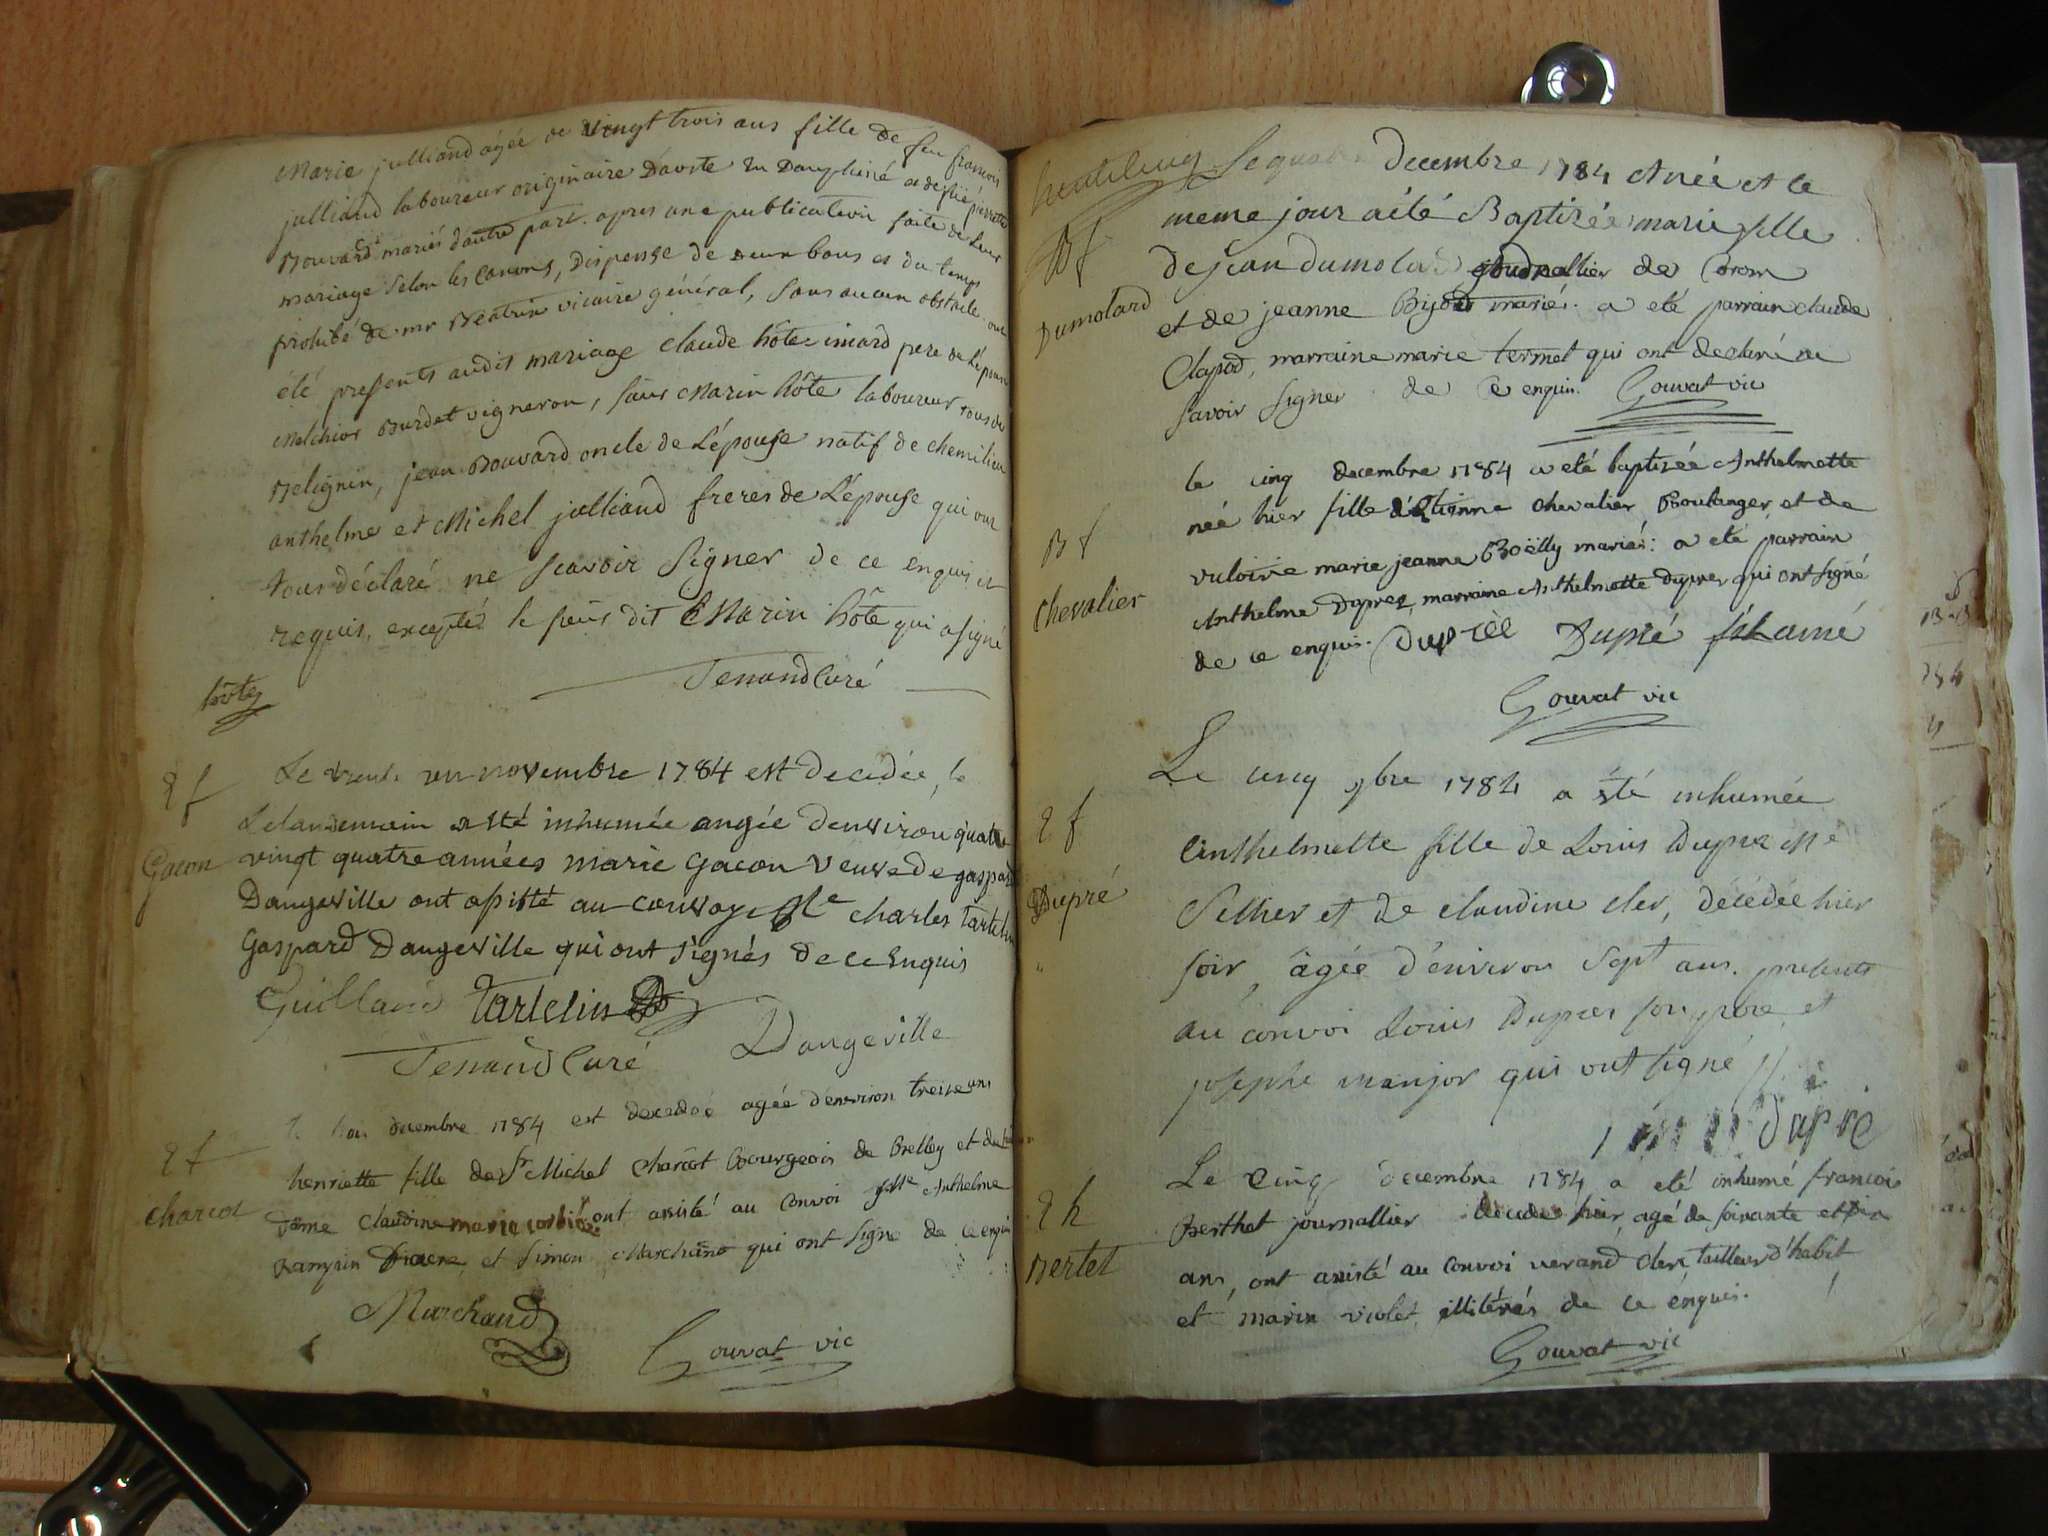 Marie julliand agée de vingt trois ans fille de feu francois
julliand laboureur originaire D'aoste en Dauphiné et de pierrette
Bouvard mariés d'autre part. apres une publication faite de leur
mariage selon les canons, Dispense de deux bans et du temps
prohibé de mr vicaire général, sans aucun obstacle. ont
été presents audit mariage claude hôte pere de l'époux
Melchior Burdet vigneron, sieur Marin hôte laboureur tous de
Melignin, jean Bouvard oncle de L'épouse natif de chemilieu
anthelme et Michel julliand freres de L'épouse qui ont
tous déclaré ne scavoir signer de ce enquis et
requis, excepté le sieur dit Marin hôte qui a signé
hôte
Tenand Curé
2 f
Gacon
Le trente un novembre 1784 est decedée, le
Lelandemain a été inhumée angée denviron quatre
vingt quatre années marie Gacon veuve de gaspard
Dangeville ont assisté au convoy Me charles tartelin
Gaspard Dangeville qui ont signés de ce Enquis
tartelin
Tenand Curé Dangeville
2 f
charcot
decembre 1784 est decedée agée d'environ treize ans
henriette fille de Sr Michel Charcot Bourgeois de Belley et de
Dame Claudine marie ont assisté au convoi Anthelme
et Simon Marchand qui ont signé de ce enquis
Marchand
Gouvat vic
decembre 1784 est née et le
meme jour a été Baptizée marie fille
de jean dumolard journallier de Coron
et de jeanne mariés. a été parrain claude
Clapod, marraine marie termet qui ont declaré ne
savoir signer de Ce enquis. Gouvat vic
B f
Dumolard
B f
chevalier
le cinq decembre 1784 a été baptizée Anthelmette
née hier fille d'Etienne chevalier Boulanger et de
marie jeanne Boëlly mariés: a été parrain
Anthelme Duprez, marraine Anthelmette Duprez qui ont signé
de ce enquis. Dupré fils ainé
Gouvat vic
2 f
Dupré
Le cinq xbre 1784 a été inhumée
Anthelmette fille de Louis Duprez Me
Sellier et de claudine cler, décédée hier
soir, âgée d'environ sept ans. presents
au convoi Louis Duprez son pere et
josephe manjor qui ont signé
Dupré
2 h
Bertet
Le Cinq decembre 1784 a été inhumé francois
Berthet journallier decedé hier, agé de soixante et six
ans, ont assisté au convoi verand cler, tailleur d'habit
et marin violet illitérés de ce enquis.
Gouvat vic